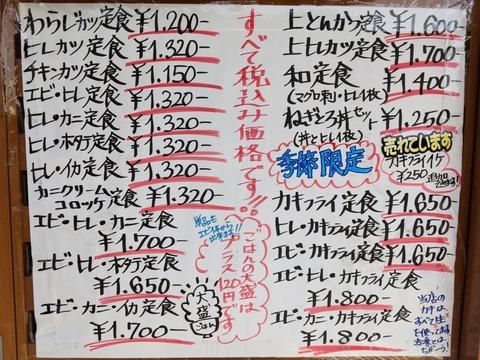 わらじカツ定食 ¥1.200-
ヒレカツ定食 ¥1.320-
チキンカツ定食 ¥1.150-
エビ・ヒレ定食 ¥1.320-
ヒレ・カニ定食 ¥1.320-
ヒレ・ホタテ定食 ¥1.320-
ヒレ・イカ定食 ¥1.320-
カニクリーム
コロッケ定食 ¥1.320-
エビ・ヒレ・カニ定食
¥1.700-
エビ・ヒレ・ホタテ定食
¥1.650-
エビ・カニ・イカ定食
¥1.700-
すべて税込み価格です!!
単品も
エビ1本から
出来ます!!
ごはんの大盛は
プラス120円です
大盛
ごはん
上とんかつ定食 ¥1.600
上ヒレカツ定食 ¥1.700-
和定食 ¥1.400-
(マグロ刺・ヒレ1枚)
ねぎとろ丼セット ¥1.250-
(丼とヒレ1枚)
売れています
季節限定
カキフライ1ケ
¥250
追加
できます!
カキフライ定食 ¥1.650-
ヒレ・カキフライ定食 ¥1.650-
エビ・カキフライ定食 ¥1.650-
エビ・ヒレ・カキフライ定食
¥1.800-
エビ・カニ・カキフライ定食
¥1.800-
当店の
カキは
すべて生を
使ってます